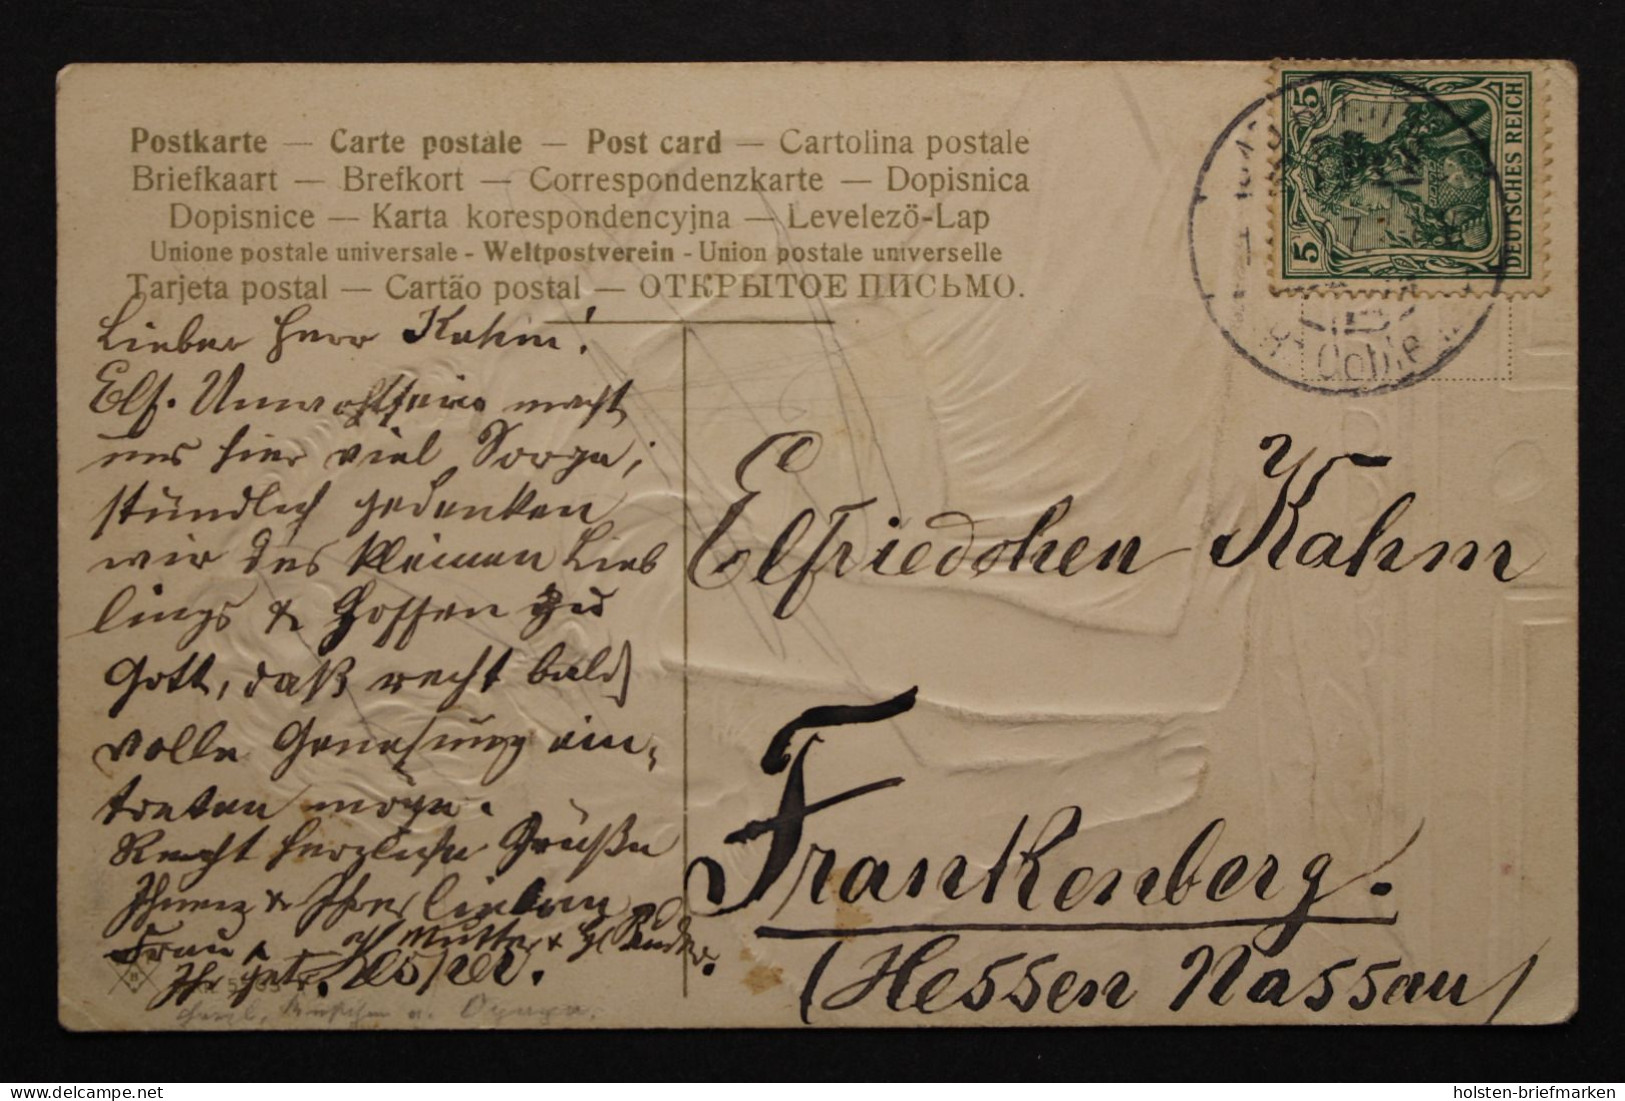 Postkarte — Carte postale — Post card — Cartolina postale
Briefkaart — Brefkort — Correspondenzkarte — Dopisnica
Dopisnice — Karta korespondencyjna — Levelező-Lap
Unione postale universale - Weltpostverein - Union postale universelle
Tarjeta postal — Cartão postal — ОТКРЫТОЕ ПИСЬМО.
5 5
DEUTSCHES REICH
Lieber Herr Kahm!
Elf. Unwohlsein macht
uns hier viel Sorge;
stündlich gedenken
wir des kleinen Lieb
lings & hoffen zu
Gott, daß recht bald
volle Genesung ein-
treten möge.
Recht herzliche Grüße
Ihnen & Ihrer lieben
Frau, Mutter &
Ihr
Elfriedchen Kahm
Frankenberg.
(Hessen Nassau)
holsten-briefmarken